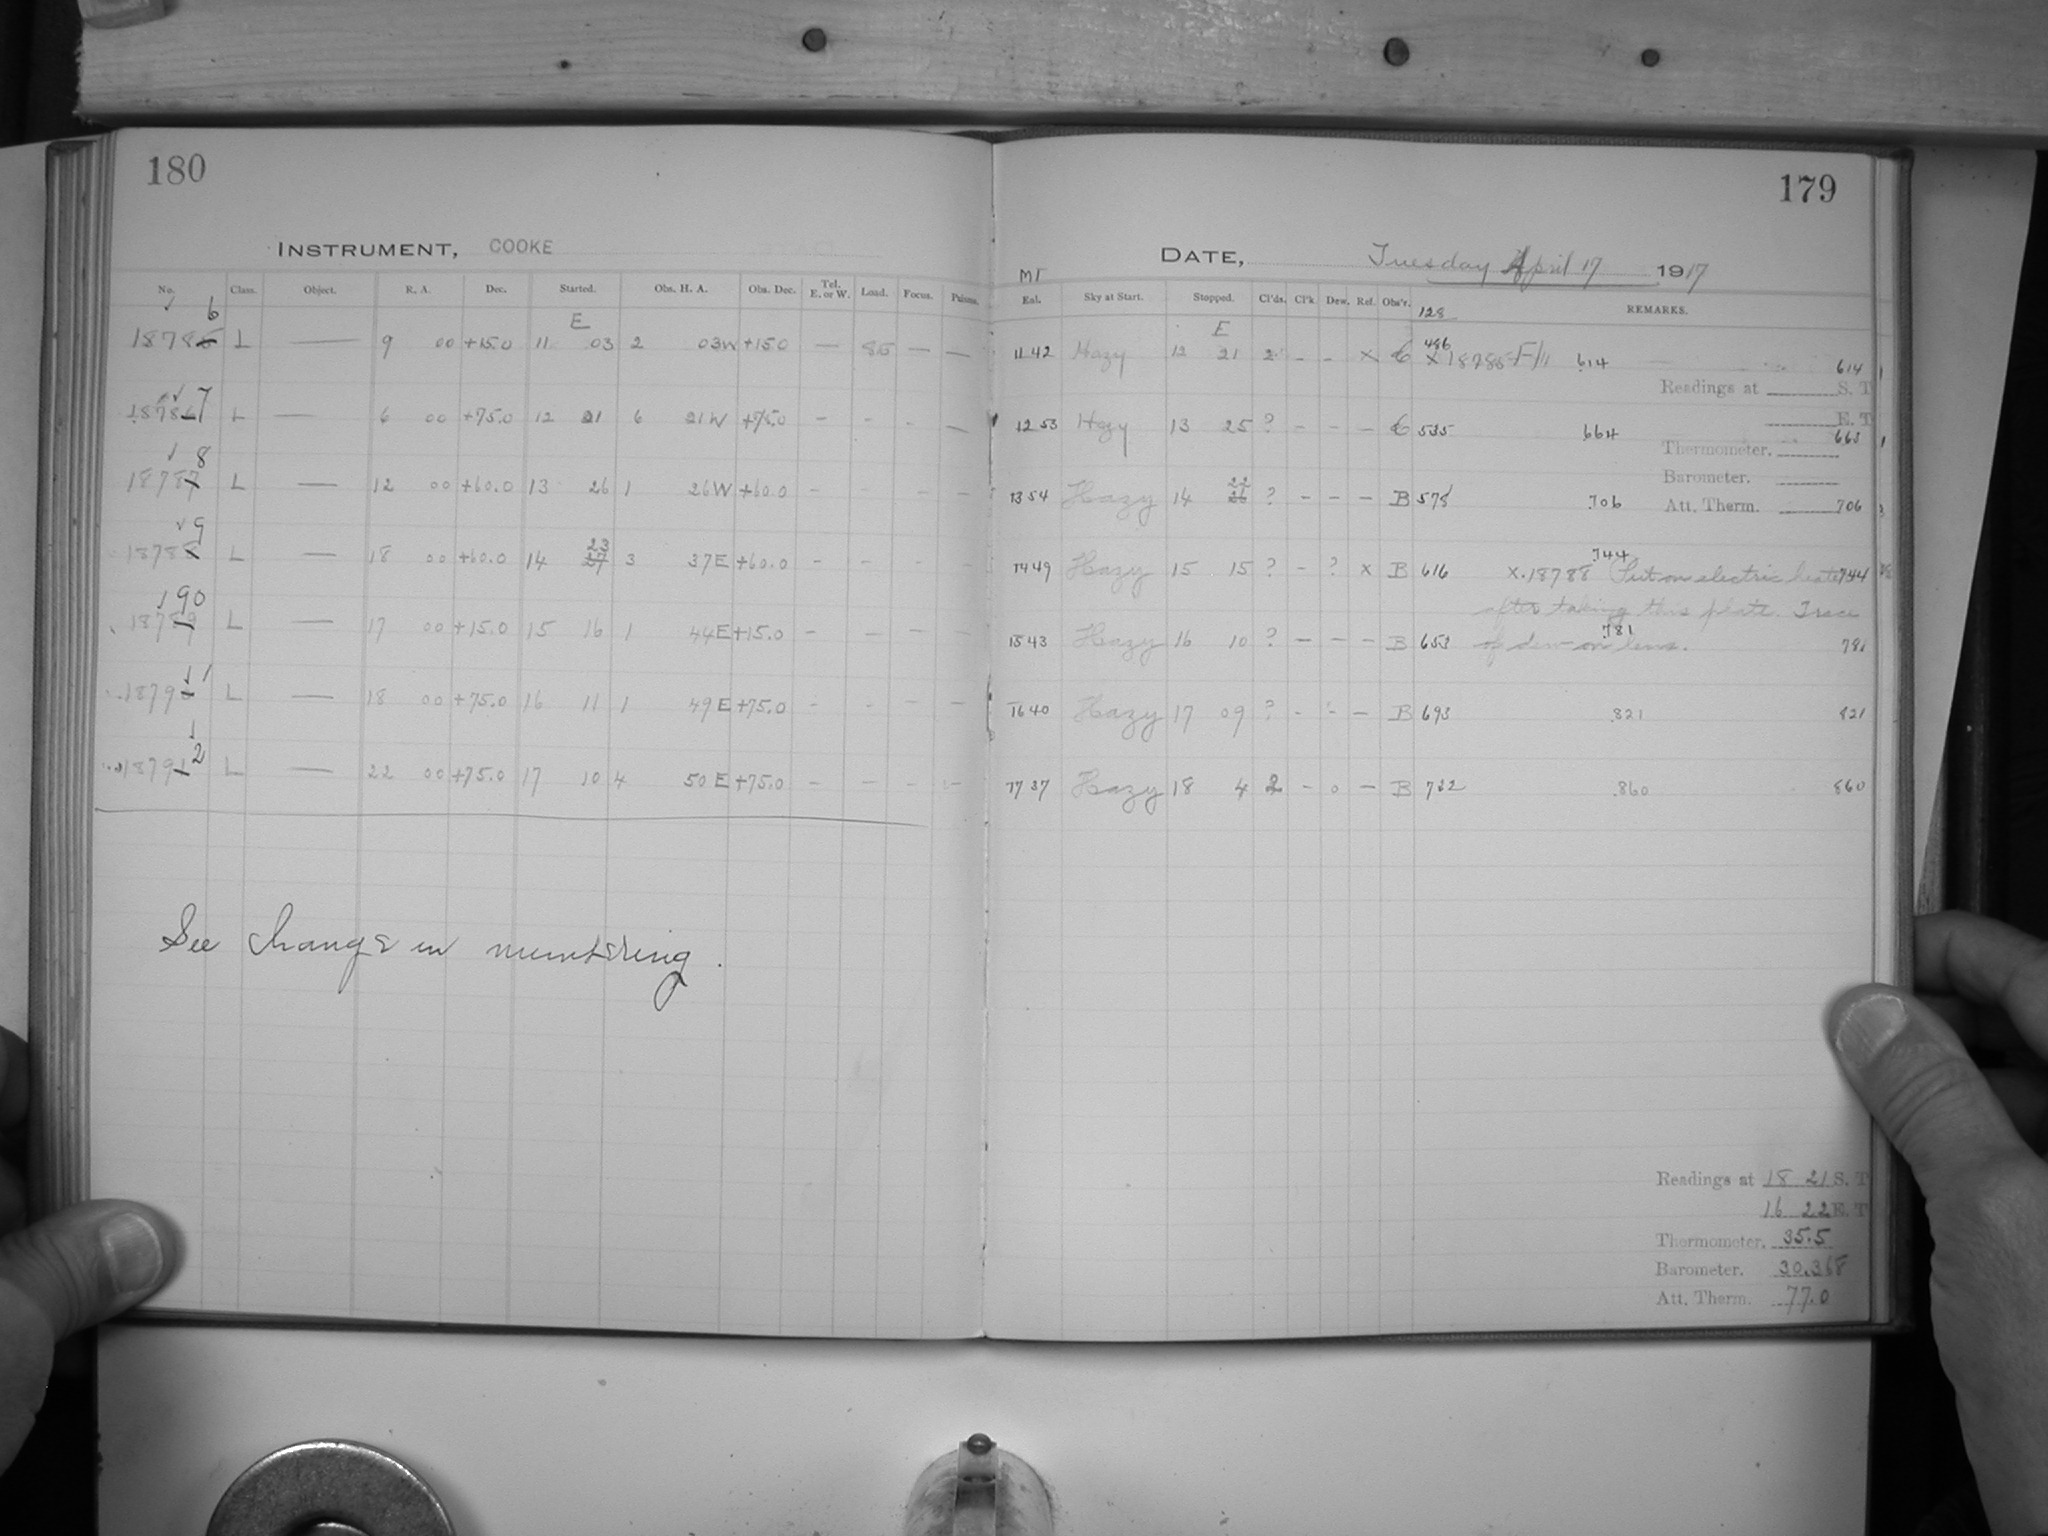 180
INSTRUMENT, COOKE
No. Class. Object. R. A. Dec. Started. Obs. H. A. Obs. Dec. Tel. E. or W. Load. Focus.
E
6
1878 L — 9 00 +15.0 11 03 2 03W +15.0 — 86 — —
7
18786 L — 6 00 +75.0 12 21 6 21W +75.0 – – – —
8
18787 L — 12 00 +60.0 13 26 1 26W +60.0 – – – –
9
23
18788 L — 18 00 +60.0 14 27 3 37E +60.0 – – – –
90
18789 L — 17 00 +15.0 15 16 1 44E +15.0 – – – –
1
18790 L — 18 00 +75.0 16 11 1 49E +75.0 – – – –
2
18791 L — 22 00 +75.0 17 10 4 50E +75.0 – – – –
See change in numbering.
179
DATE, Tuesday April 17 1917
MT
Eal. Sky at Start. Stopped. Cl'ds. Cl'k. Dew. Ref. Obs'r. 128 REMARKS.
E
486
11 42 Hazy 12 21 2 – – x C x 18785 F/11 614 614
Readings at S. T
E. T
12 53 Hazy 13 25 ? – – – C 535 664 663
Thermometer.
Barometer.
22
13 54 Hazy 14 26 ? – – – B 578 .706 Att. Therm. 706
744
14 49 Hazy 15 15 ? – ? x B 616 x. 18788 Put on electric heater 744
after taking this plate. Trace
781
15 43 Hazy 16 10 ? – – – B 653 of dew on lens. 781
16 40 Hazy 17 09 ? – – – B 693 .821 821
17 37 Hazy 18 4 2 – 0 – B 732 .860 860
Readings at 18 21 S. T
16 22 E. T
Thermometer. 35.5
Barometer. 30.368
Att. Therm. 77.0